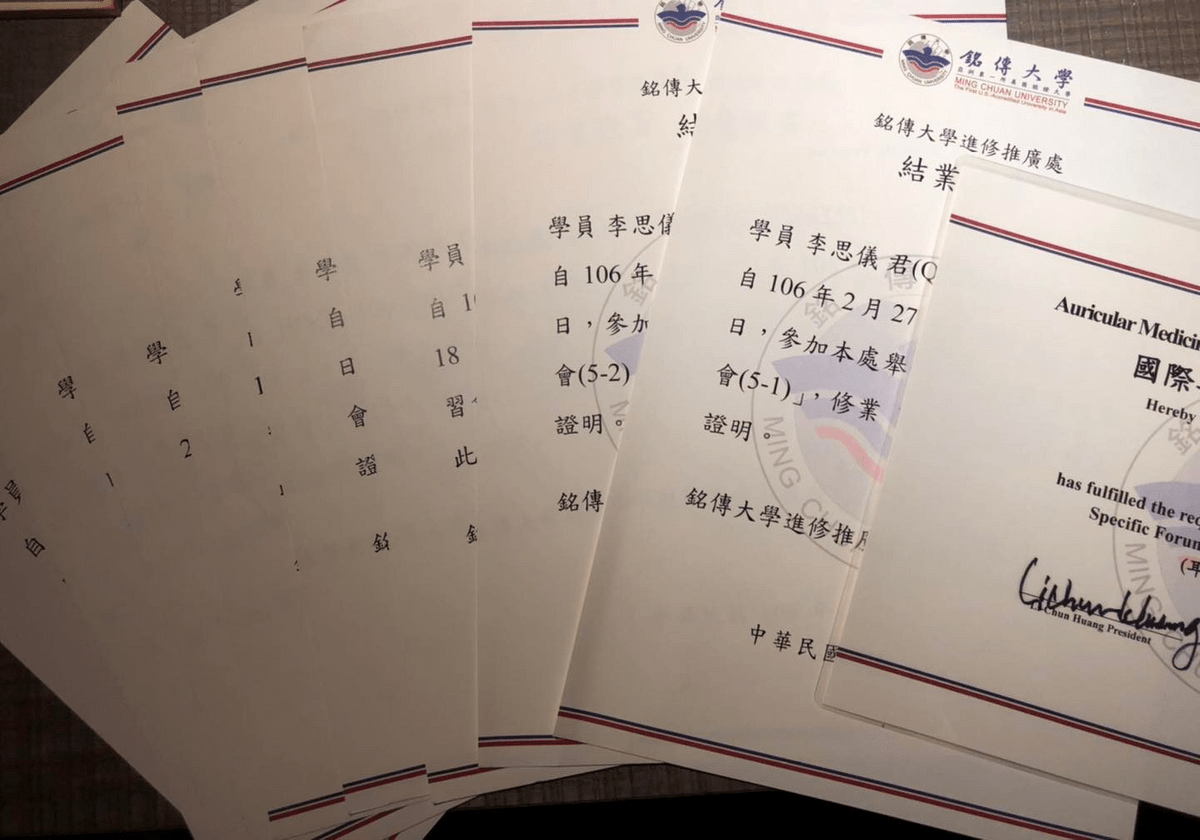 學
自
2
學
自
1
1
學
自
日
會
證
學員
自
18
習
此
MING CHUAN UNIVERSITY
銘傳大
結
學員 李思儀
自 106 年
日，參加
會(5-2)
證明。
銘傳
銘傳大學
MING CHUAN UNIVERSITY
The First U.S.-Accredited University in Asia
銘傳大學進修推廣處
結業
學員 李思儀 君(Q
自 106 年 2 月 27
日，參加本處舉
會(5-1)」，修業
證明。
銘傳大學進修推
中華民國
銘傳
MING CHU
Auricular Medicin
國際
Hereby
has fulfilled the req
Specific Forum
Li Chun Huang President
MING